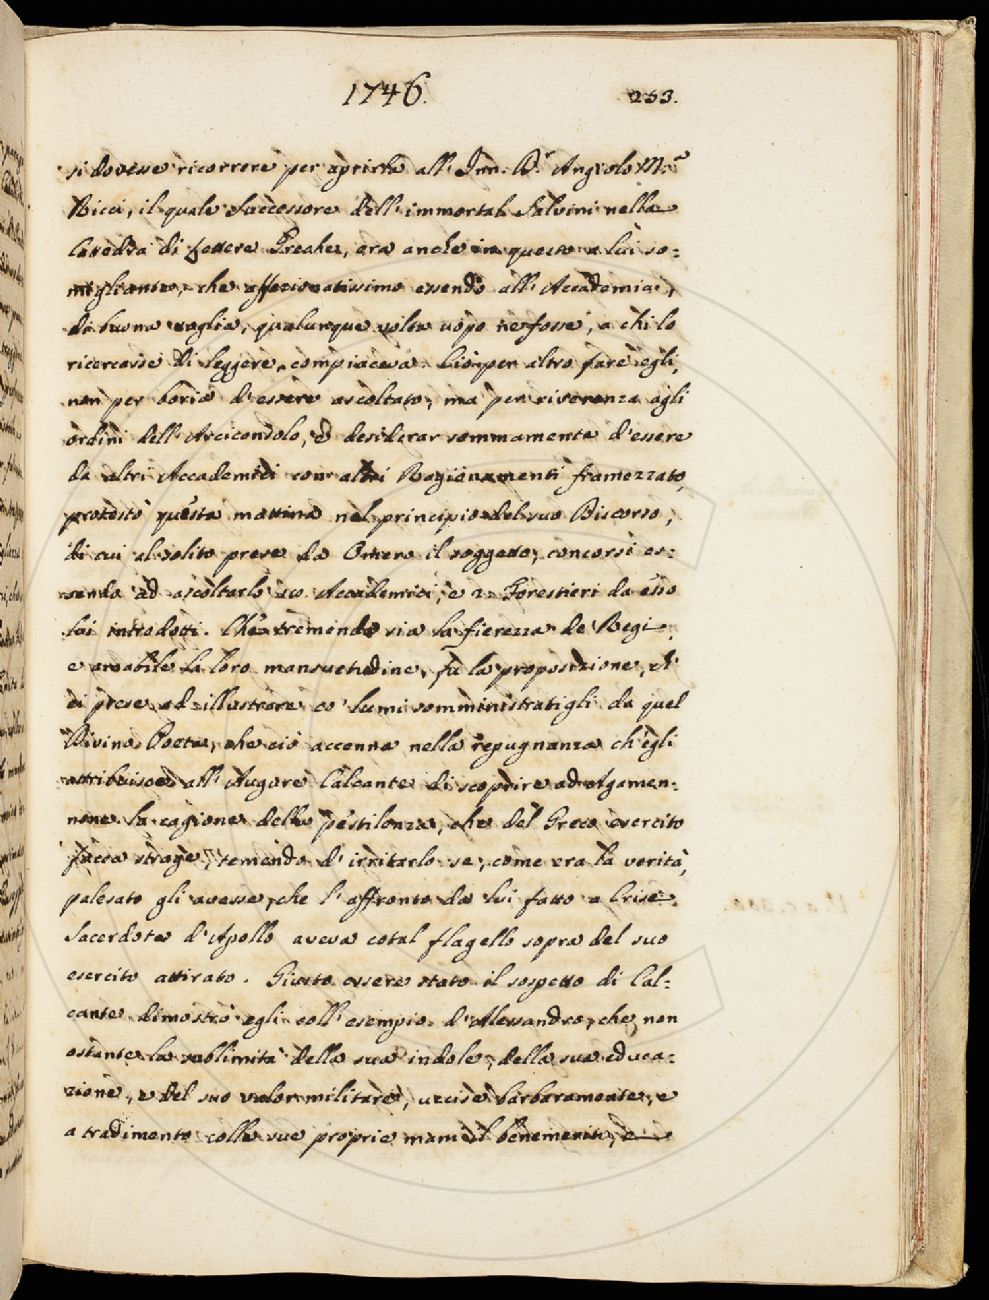 1746.
253.
si dovesse ricorrere per aprirla all' Inn. D.r Angiolo M.a
Ricci, il quale Successore dell' immortal Salvini nella
Catedra di Lettere Greche, era anche in questo a lui so=
migliante, che affezionatissimo essendo all' Accademia,
di buona voglia, qualunque volta uopo ne fosse, a chi lo
ricercasse di leggere, compiaceva. Ciò per altro fare egli,
non per boria d'essere ascoltato, ma per riverenza agli
ordini dell' Arciconsolo, e desiderar sommamente d'essere
da altri Accademici con altri Ragionamenti framezzato,
protestò questa mattina nel principio del suo Discorso,
di cui al solito prese da Omero il soggetto, concorsi es=
sendo ad ascoltarlo 20 Accademici, e 2 Forestieri da esso
lui introdotti. Che tremenda sia la fierezza de Regi,
e amabile la loro mansuetudine, fu la proposizione, ch'
ei prese ad illustrare co' lumi somministratigli da quel
Divino Poeta, che ciò accenna nella repugnanza ch'egli
attribuisce all' Augure Calcante di scoprire ad Agamen=
none la cagione della pestilenza, che del Greco esercito
facea strage, temendo d'irritarlo se, come era la verità,
palesato gli avesse, che l'affronto da lui fatto a Crise
Sacerdote d'Apollo aveva cotal flagello sopra del suo
esercito attirato. Giusto essere stato il sospetto di Cal=
cante dimostrò egli coll' esempio d'Alessandro, che non
ostante la sublimità della sua indole, della sua educa=
zione, e del suo valor militare, uccise barbaramente, e
a tradimento colle sue proprie mani il benemerito, e